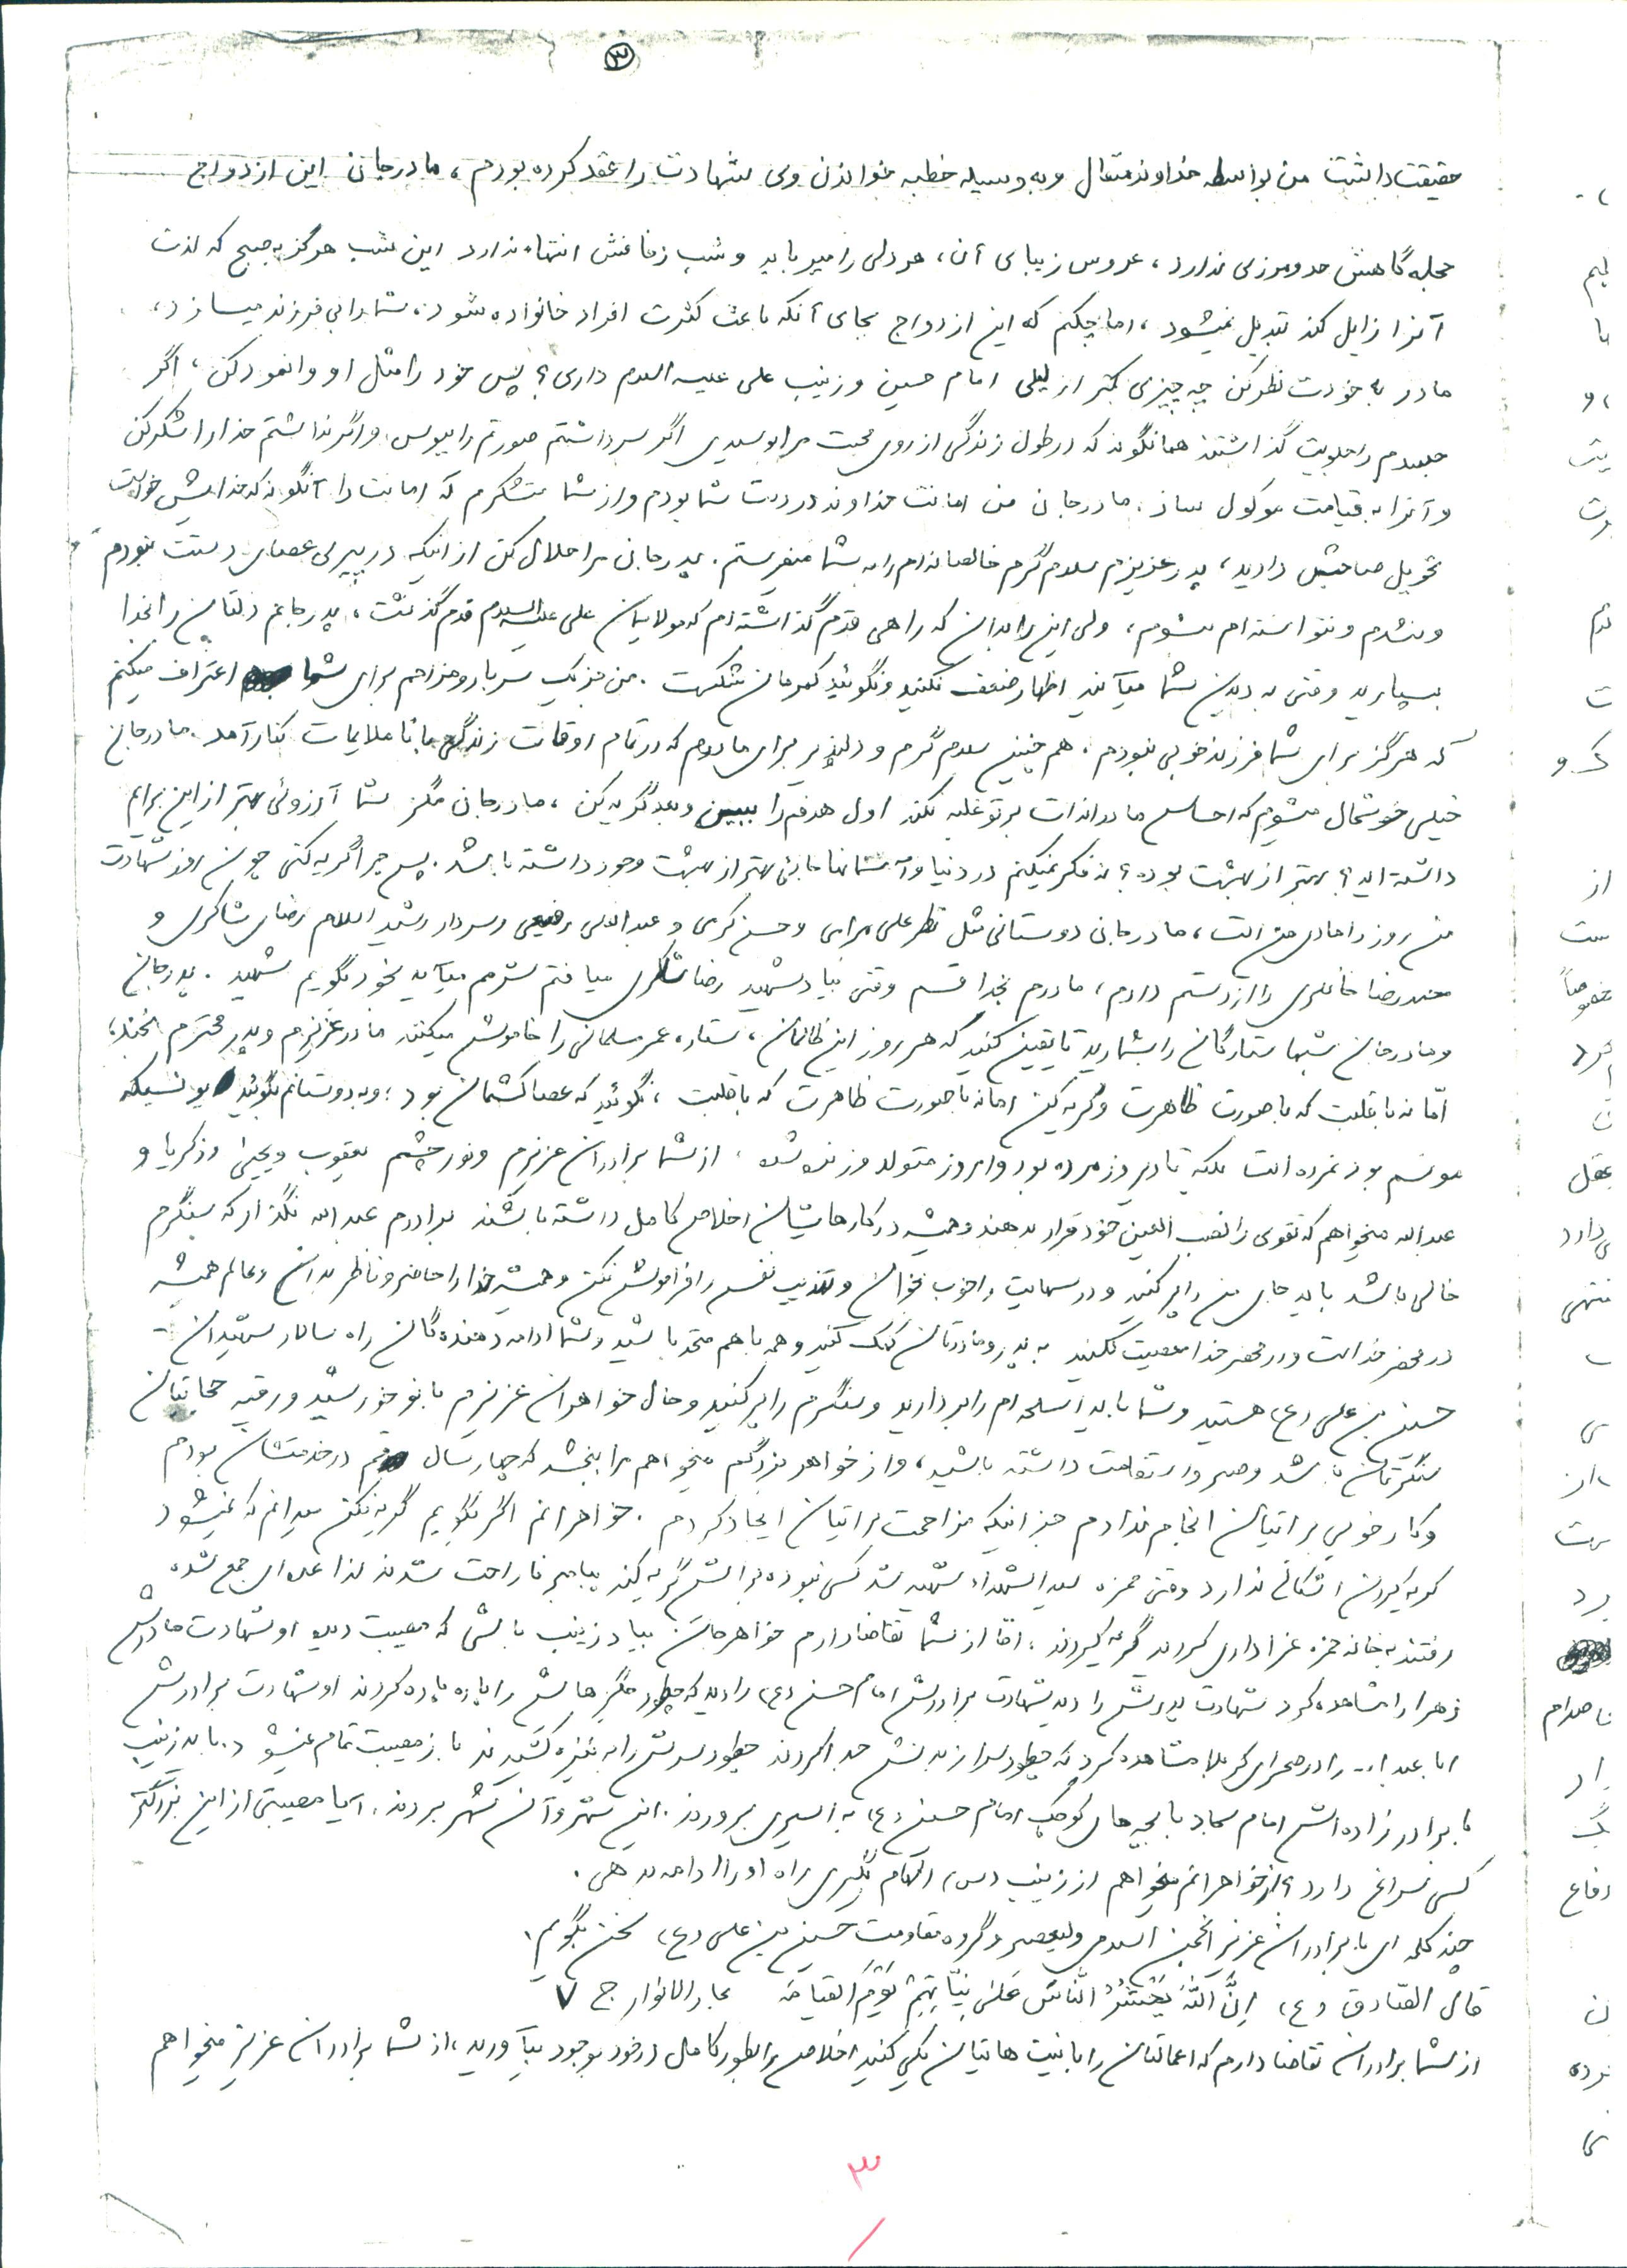 ۳
حقیقت داشت من بواسطه خداوند متعال و به وسیله خطبه خواندن وی شهادت را عقد کرده بودم، مادرجان این ازدواج
حجله گاهش حد و مرزی ندارد، عروس زیبای آن، هر دلی را میرباید و شب زفافش انتهاء ندارد این شب هرگز به صبح که لذت
آنرا زایل کند تبدیل نمیشود، اما چکنم که این ازدواج بجای آنکه باعث کثرت افراد خانواده شود، شما را بی فرزند میسازد،
مادر به خودت نظر کن چه چیزی کمتر از لیلی امام حسین و زینب علی علیه السلام داری؟ پس خود را مثل او وانمود کن، اگر
جسدم را جلویت گذاشتند همانگونه که در طول زندگی از روی محبت مرا بوسیدی اگر سر داشتم صورتم را ببوس و اگر نداشتم خدا را شکر کن
و آنرا به قیامت موکول ساز. مادرجان من امانت خداوند در دست شما بودم و از شما متشکرم که امانت را آنگونه که خدایش خواست
تحویل صاحبش دادید، پدر عزیزم سلام گرم خالصانه ام را به شما میفرستم. پدرجان مرا حلال کن از اینکه در پیری عصای دستت نبودم
و نشدم و نتوانسته ام بشوم، ولی این را بدان که راهی قدم گذاشته ام که مولایمان علی علیه السلام قدم گذاشت، پدر جانم دلتان را بخدا
بسپارید وقتی به دیدن شما میآیند اظهار ضعف نکنید و نگوئید کمرمان شکست. من جز یک سربار و مزاحم برای شما اعتراف میکنم
که هرگز برای شما فرزند خوبی نبودم، هم چنین سلام گرم و دلپذیر برای مادرم که در تمام اوقات زندگی با ناملایمات کنار آمد. مادرجان
خیلی خوشحال میشوم که احساس مادرانه ات بر تو غلبه نکند اول هدفم را ببین و بعد گریه کن، مادرجان مگر شما آرزوئی بهتر از این برایم
داشته اید؟ بهتر از بهشت بوده؟ نه فکر نمیکنم در دنیا و آسمانها جائی بهتر از بهشت وجود داشته باشد. پس چرا گریه کنی چون روز شهادت
من روز دامادی من است، مادرجان دوستانی مثل نظرعلی مرامی و حسن کرمی و عبدالعلی رفیعی و سردار رشید اسلام رضای شاکری و
محمدرضا خانلری را از دستم دادم، مادرم بخدا قسم وقتی بیاد شهید رضا شاکری میافتم شرمم میآید بخود بگویم شهید. پدرجان
و مادرجان شبها ستارگان را بشمارید تا یقین کنید که هر روز این ظالمان، ستاره عمر مسلمانی را خاموش میکنند مادر عزیزم و پدر محترم بخندید،
امّا نه با قلبت که با صورت ظاهرت و گریه کن اما نه با صورت ظاهرت که با قلبت، نگوئید که عصا کشمان بود؛ و به دوستانم بگوئید یونسیکه
مونسم بود نمرده است بلکه تا دیروز مرده بود و امروز متولد و زنده شده. از شما برادران عزیزم و نور چشم یعقوب و یحیی و زکریا و
عبدالله میخواهم که تقوی را نصب العین خود قرار بدهند و همیشه در کارهایشان اخلاص کامل داشته باشند برادرم عبدالله نگذار که سنگرم
خالی باشد باید جای من را پر کنید و درسهایت را خوب بخوان و تهذیب نفس را فراموش نکن و همیشه خدا را حاضر و ناظر بدان و عالم همیشه
در محضر خداست و در محضر خدا معصیت نکنید به پدر و مادرتان کمک کنید و همه با هم متحد باشید و شما ادامه دهنده گان راه سالار شهیدان
حسین بن علی (ع) هستید و شما باید اسلحه ام را بردارید و سنگرم را پر کنید و حال خواهران عزیزم بانو خورشید و رقیه حجابتان
سنگرتان باشد و صبر و استقامت داشته باشید، و از خواهر بزرگم میخواهم مرا ببخشد که چهار سال در خدمتشان بودم
و کار خوبی براتیان انجام ندادم جز اینکه مزاحمت براتیان ایجاد کردم. خواهرانم اگر بگویم گریه نکن میدانم که نمیشود
گریه کردن اشکالی ندارد وقتی حمزه سید الشهداء شهید شد کسی نبوده برایش گریه کند پیامبر ناراحت شدند لذا عده ای جمع شده
رفتند به خانه حمزه عزاداری کردند گریه کردند، امّا از شما تقاضا دارم خواهرجان بیاد زینب باشی که مصیبت دیده او شهادت مادرش
زهرا را مشاهده کرد شهادت پدرش را دید شهادت برادرش امام حسن (ع) را دید که چطور جگرهایش را پاره پاره کردند او شهادت برادرش
ابا عبدا... را در صحرای کربلا مشاهده کرد که چطور سر از بدنش جدا کردند چطور سرش را به نیزه کشیدند باز مصیبت تمام نمیشود. باید زینب
با برادر زاده اش امام سجاد با بچه های کوچک امام حسین (ع) به اسیری بروند. این شهر و آن شهر بردند. آیا مصیبتی از این بزرگتر
کسی سراغ دارد؟ از خواهرانم میخواهم از زینب (س) الهام بگیری راه او را ادامه بدهی.
چند کلمه ای با برادران عزیز انجمن اسلامی ولیعصر و گروه مقاومت حسین بن علی (ع) سخن بگویم.
قال الصّادق (ع) اِنَّ اللّهَ یَحْشُرُ النّاسَ عَلیٰ نِیّاتِهِمْ یَوْمَ القیامَة بحار الانوار ج ۷
از شما برادران تقاضا دارم که اعمالتان را با نیت هاتیان یکی کنید اخلاص را بطور کامل در خود بوجود بیآورید، از شما برادران عزیز میخواهم
۳
لیم
با
و
یت
ت
ک و
از
ست
خصوصاً
عقل
ی دارد
منتهی
ی
رد
ار
دفاع
ن